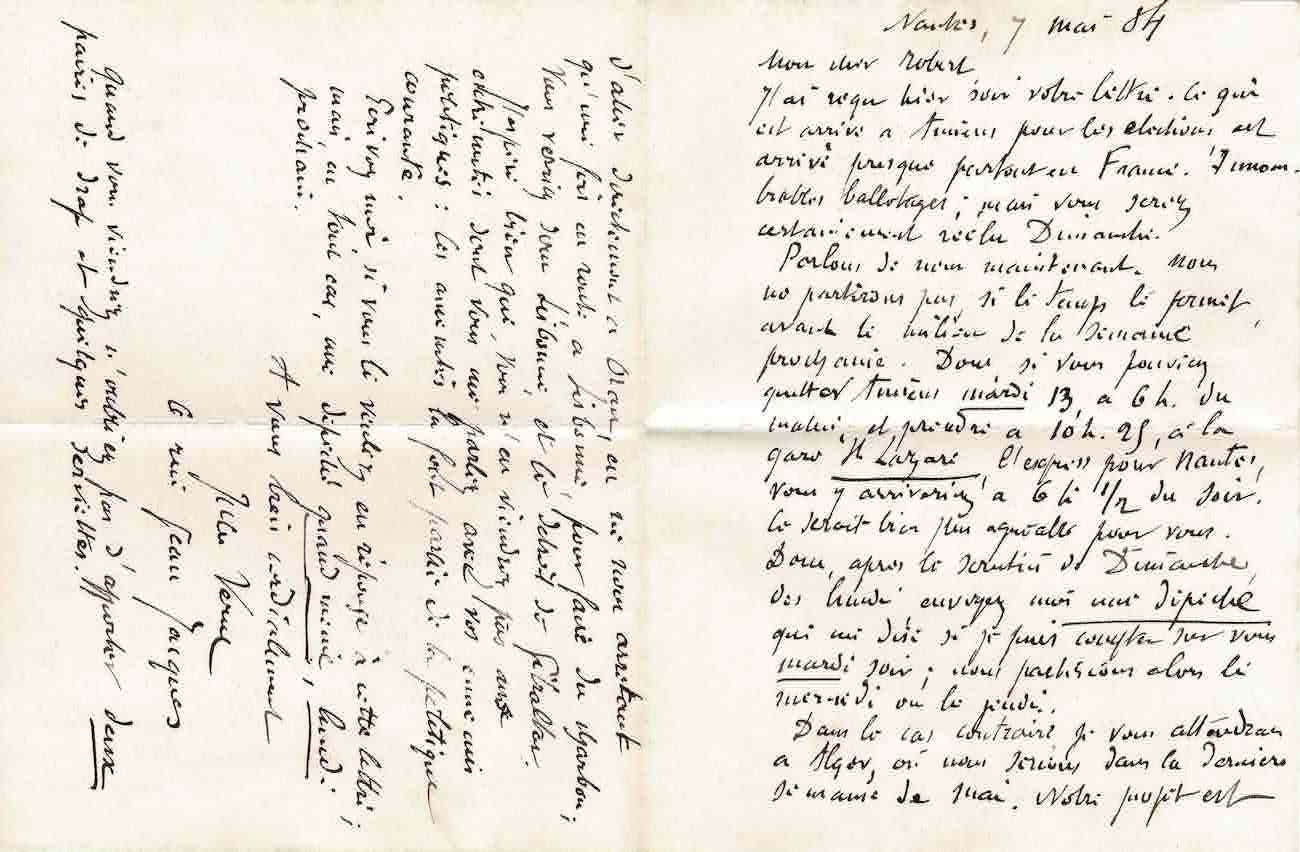 Nantes, 7 mai 84
Mon cher Robert
J'ai reçu hier soir votre lettre. Ce qui
est arrivé à Amiens pour les élections est
arrivé presque partout en France. Innom-
brables ballotages ; mais vous serez
certainement réélu Dimanche.
Parlons de nous maintenant. Nous
ne partirons pas, si le temps le permet,
avant le milieu de la semaine
prochaine. Donc, si vous pouviez
quitter Amiens mardi 13 à 6 h. du
matin, et prendre à 10 h. 25, à la
gare St Lazare l'express pour Nantes,
vous y arriveriez à 6 h 1/2 du soir.
Ce serait bien plus agréable pour vous.
Donc, après le scrutin de Dimanche,
dès lundi envoyez moi une dépêche
qui me dise si je puis compter sur vous
mardi soir ; nous partirions alors le
mercredi ou le jeudi.
Dans le cas contraire je vous attendrai
à Alger, où nous serions dans la dernière
semaine de mai. Notre projet est
d'aller directement à Oran, en ne nous arrêtant
qu'une fois en route à Lisbonne, pour faire du charbon ;
Vous verriez donc Lisbonne et le détroit de Gibraltar.
J'espère bien que, Noé n'en viendra pas aux
extrémités dont vous me parlez avec vos ennemis
politiques : les inimitiés la font partie de la politique
courante.
Ecrivez moi si vous le voulez en réponse à cette lettre ;
mais, en tout cas, une dépêche quand même, lundi
prochain.
A vous bien cordialement
Jules Verne
6 rue Jean Jacques
Quand vous viendrez n'oubliez pas d'apporter deux
paires de drap et quelques serviettes.